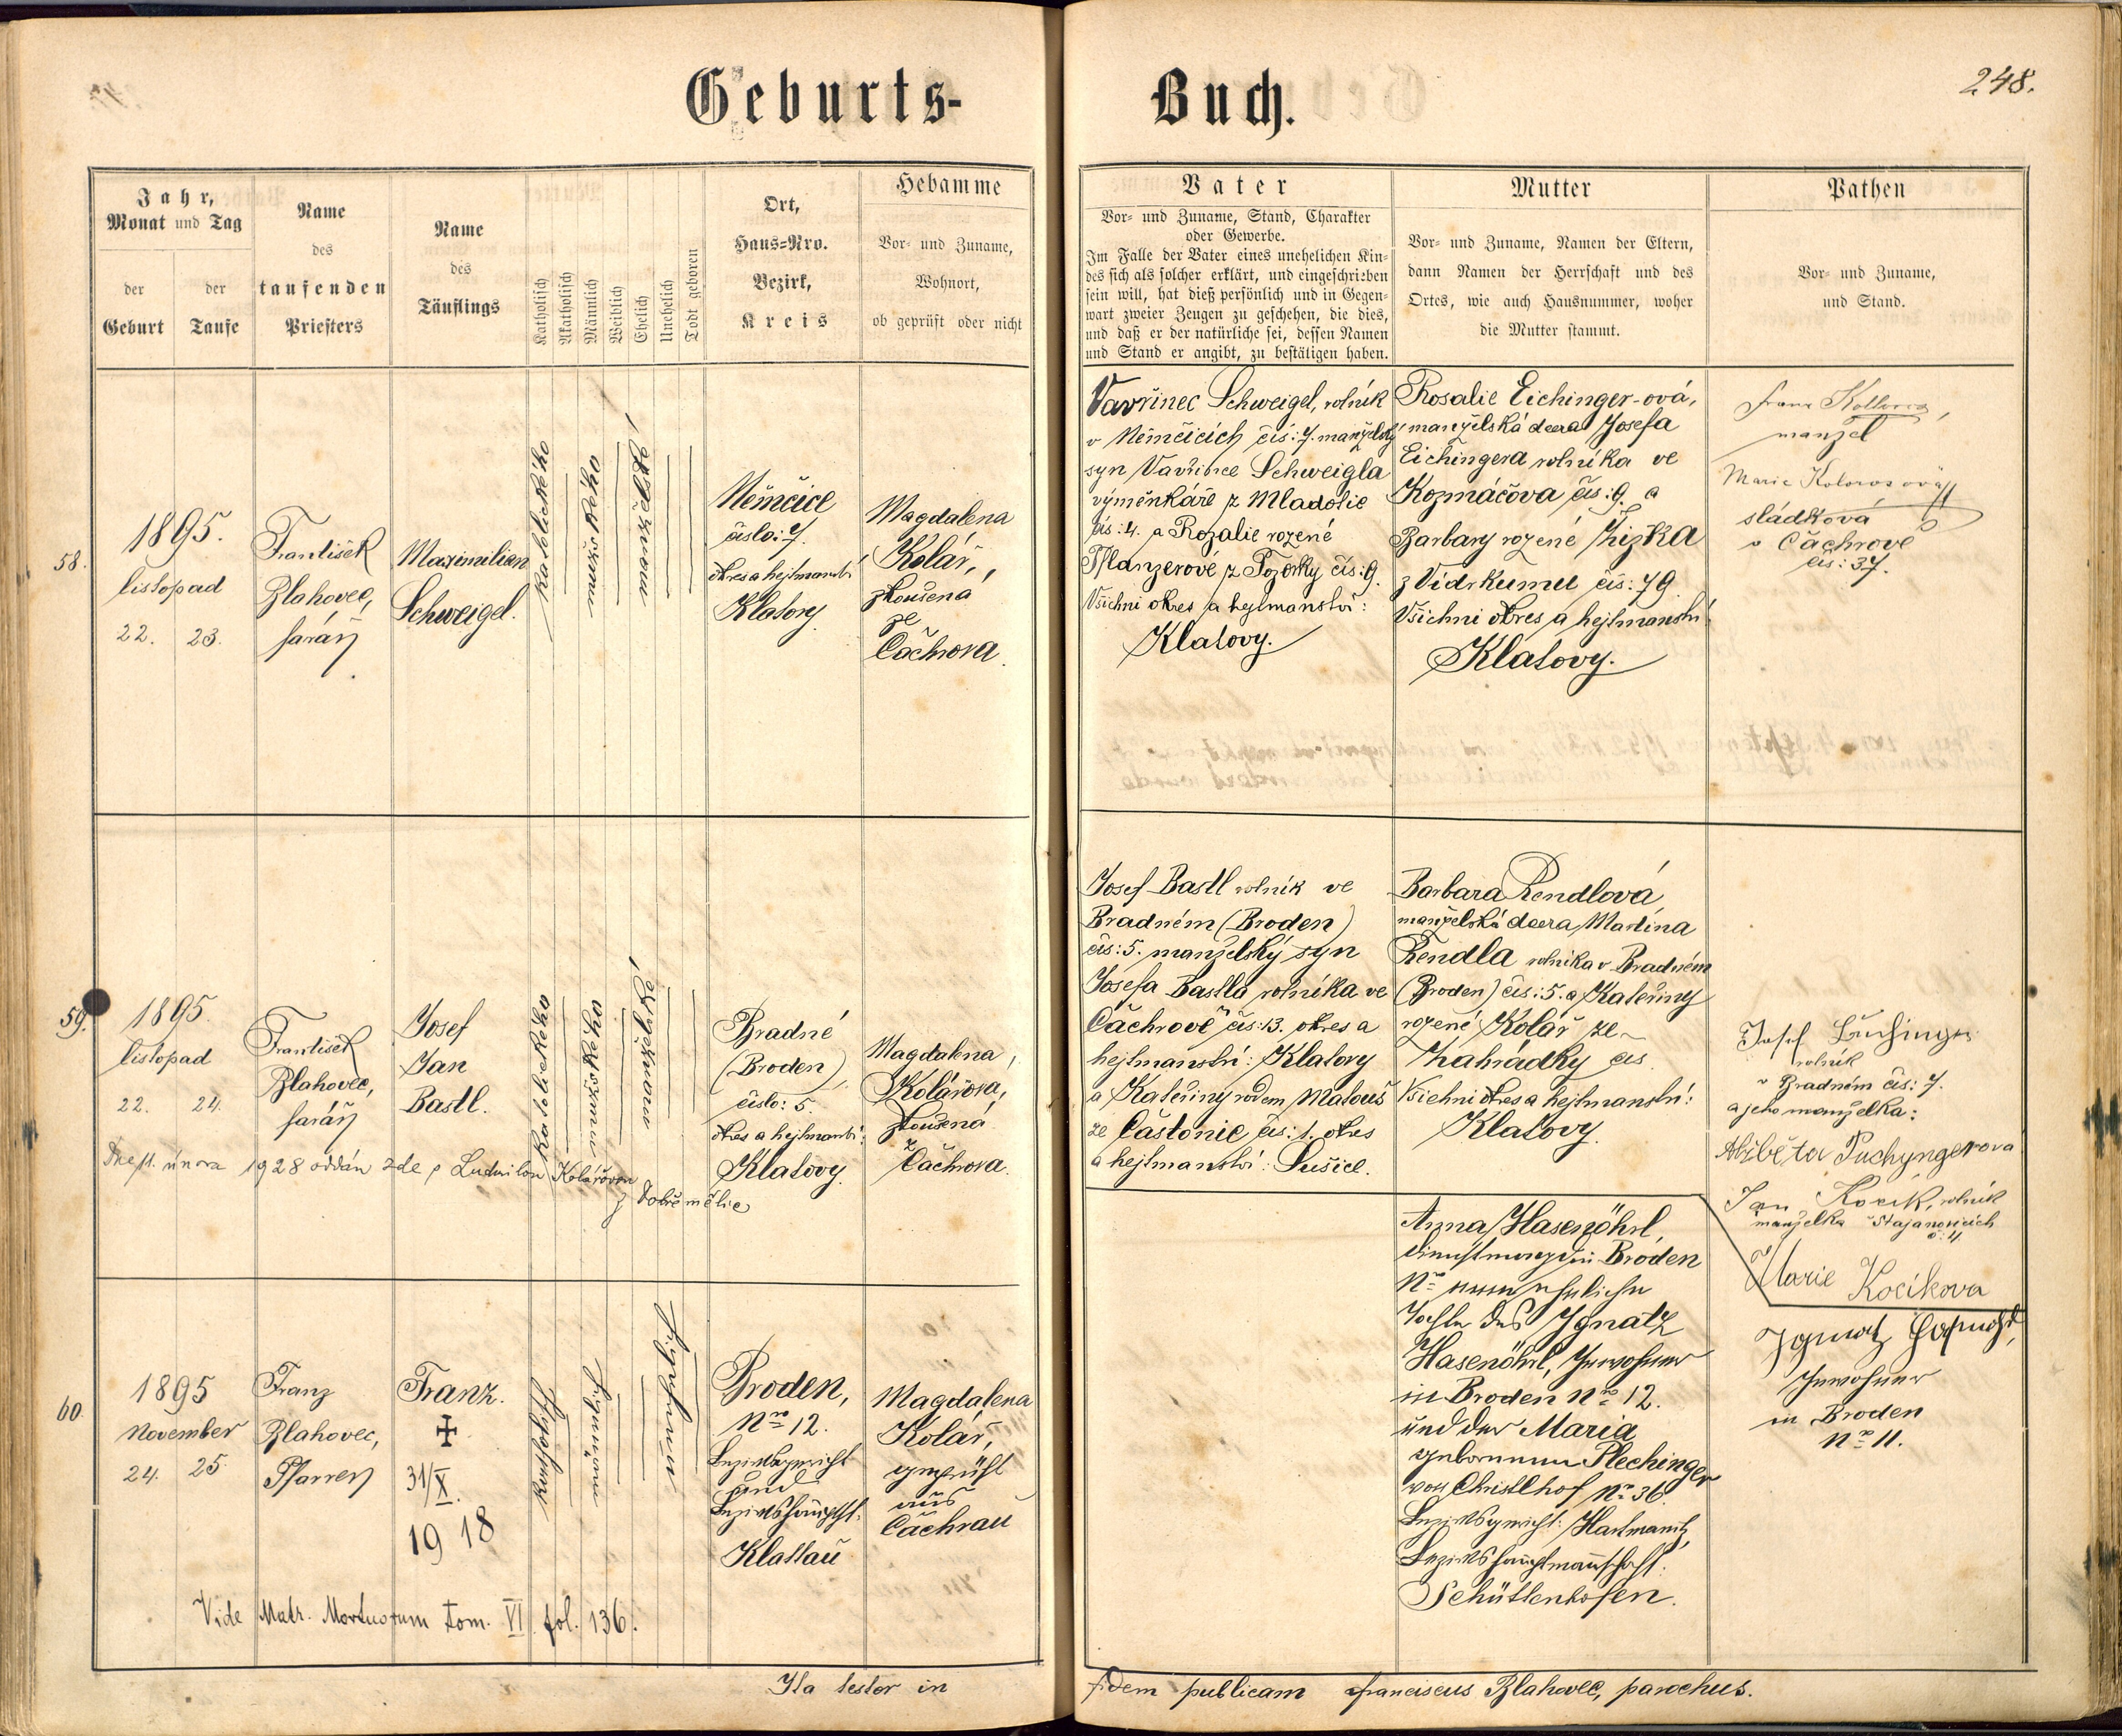 Geburts-
Buch.
248.
Jahr,
Monat und Tag
der
Geburt
der
Taufe
Name
des
taufenden
Priesters
Name
des
Täuflings
Katholisch
Akatholisch
Männlich
Weiblich
Ehelich
Unehelich
Todt geboren
Ort,
Haus-Nro.
Bezirk,
Kreis
Hebamme
Vor- und Zuname,
Wohnort,
ob geprüft oder nicht
Vater
Vor- und Zuname, Stand, Charakter
oder Gewerbe.
Im Falle der Vater eines unehelichen Kin-
des sich als solcher erklärt, und eingeschrieben
sein will, hat dieß persönlich und in Gegen-
wart zweier Zeugen zu geschehen, die dies,
und daß er der natürliche sei, dessen Namen
und Stand er angibt, zu bestätigen haben.
Mutter
Vor- und Zuname, Namen der Eltern,
dann Namen der Herrschaft und des
Ortes, wie auch Hausnummer, woher
die Mutter stammt.
Pathen
Vor- und Zuname,
und Stand.
58.
1895.
listopad
22. 23.
František
Blahovec,
farář
Maximilian
Schweigel.
katolického
mužského
z manželského
Němčice
číslo: 7.
okres a hejtmanství
Klatovy
Magdalena
Kolář,
zkoušená
ze
Čachrova.
Vavřinec Schweigel, rolník
v Němčicích čís: 7. manželský
syn Vavřince Schweigla
výměnkáře z Mladotic
čís: 4. a Rozalie rozené
Pflanzerové z čís: 9.
Všichni okres a hejtmanství:
Klatovy.
Rosalie Eichinger-ová,
manželská dcera Josefa
Eichingera rolníka ve
Kozmáčova čís: 9. a
Barbary rozené Žižka
z Vidrkumu čís: 79
Všichni okres a hejtmanství
Klatovy.
manžel
Marie
sládková
v Čachrově
čís: 37.
59.
1895.
listopad
22. 24.
František
Blahovec,
farář
Josef
Jan
Bastl.
katolického
mužského
Bradné
(Broden)
číslo: 5.
okres a hejtmanství:
Klatovy.
Magdalena
Kolářová,
zkoušená
z
Čachrova.
Dne 11. února 1928 oddán zde s Ludmilou Kolářovou
z Dobřemělic
Josef Bastl rolník ve
Bradném (Broden)
čís: 5. manželský syn
Josefa Bastla rolníka ve
Čachrově čís: 13. okres a
hejtmanství: Klatovy
a Kateřiny rodem Matouš
ze Částonic čís: 1. okres
a hejtmanství: Sušice.
Barbara Rendlová,
manželská dcera Martina
Rendla rolníka v Bradném
(Broden) čís: 5. a Kateřiny
rozené Kolář ze
Zahrádky čís
Všichni okres a hejtmanství:
Klatovy.
Josef
rolník
v Bradném čís: 7.
a jeho manželka:
Alžběta Puchyngerova
Jan Kocík, rolník
manželka
Marie Kocikova
60.
1895
November
24. 25.
Franz
Blahovec,
Pfarrer
Franz.
✝
31/X.
1918
Broden,
Nro 12.
Bezirksgericht
und
Bezirkshauptst.
Klattau
Magdalena
Kolář,
geprüft
aus
Čachrau
Vide Matr. Mortuorum tom. VI. fol. 136.
Anna Hasenöhrl,
Dienstmagd in Broden
Tochter des Ignatz
Hasenöhrl, Inwohner
in Broden Nro 12.
und der Maria
geborenen Plechinger
von Christlhof Nro 36.
Bezirksgericht: Hartmanitz,
Bezirkshauptmannschaft:
Schüttenhofen.
Ignatz
Inwohner
in Broden
Nro 11.
Ita testor in fidem publicam Franciscus Blahovec, parochus.